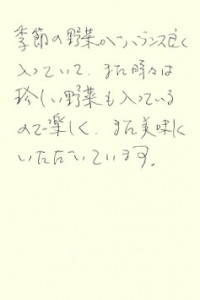 季節の野菜がバランス良く
入っていて、また時々は
珍しい野菜も入っている
ので楽しく、また美味に
いただいています。